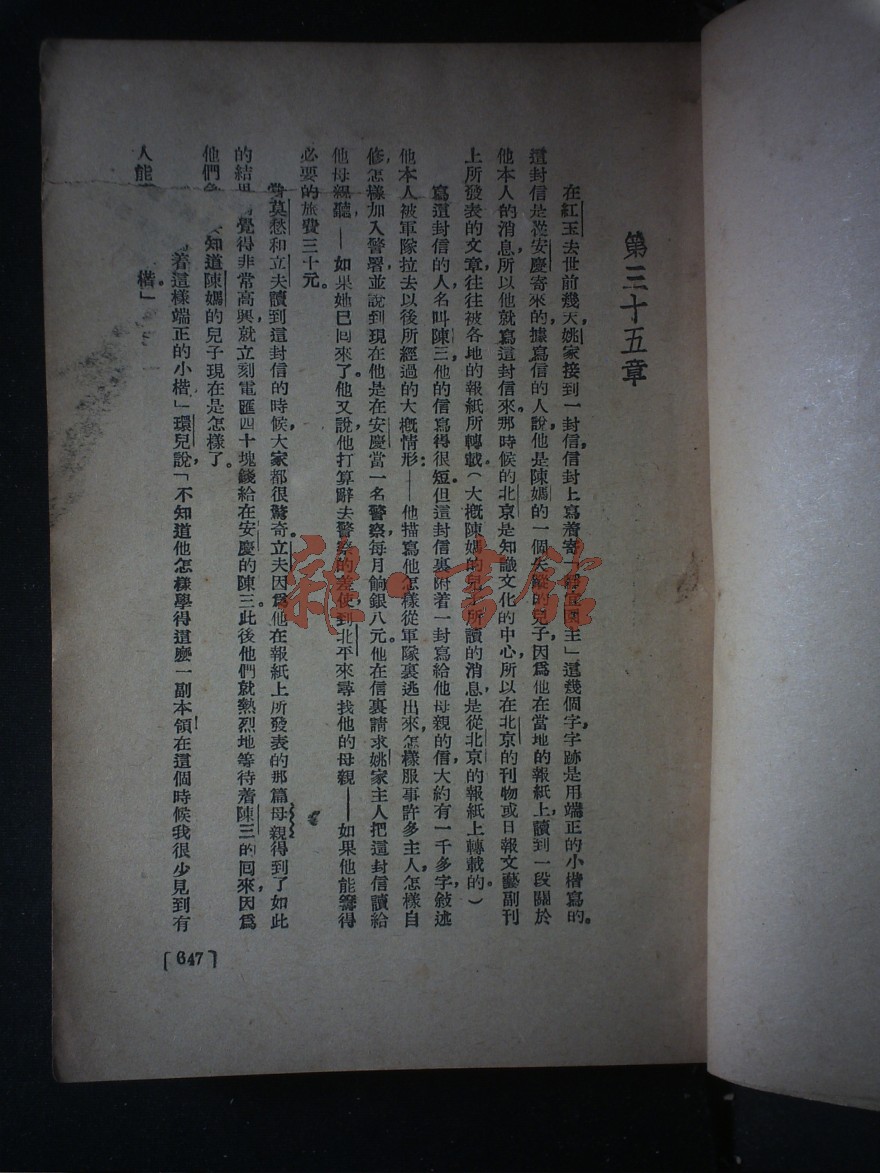 第三十五章
在紅玉去世前幾天,姚家接到一封信,信封上寫着寄「 主」這幾個字,字跡是用端正的小楷寫的。
這封信是從安慶寄來的,據寫信的人說,他是陳媽的一個失 的兒子,因爲他在當地的報紙上,讀到一段關於
他本人的消息,所以他就寫這封信來。那時候的北京是知識文化的中心,所以在北京的刊物或日報文藝副刊
上所發表的文章,往往被各地的報紙所轉載(大槪陳媽的兒子所讀的消息,是從北京的報紙上轉載的。)
寫這封信的人,名叫陳三,他的信寫得很短。但這封信裏附着一封寫給他母親的信,大約有一千多字,敍述
他本人被軍隊拉去以後所經過的大槪情形:——他描寫他怎樣從軍隊裏逃出來,怎樣服事許多主人,怎樣自
修,怎樣加入警署,並說到現在他是在安慶當一名警察,每月餉銀八元。他在信裏請求姚家主人把這封信讀給
他母親聽,——如果她已回來了。他又說,他打算辭去警察的差使,到北平來尋找他的母親——如果他能籌得
必要的旅費三十元。
當莫愁和立夫讀到這封信的時候,大家都很驚奇。立夫因爲他在報紙上所發表的那篇母親得到了如此
的結果, 覺得非常高興,就立刻電匯四十塊錢給在安慶的陳三。此後他們就熱烈地等待着陳三的回來,因爲
他們 知道陳媽的兒子現在是怎樣了。
着這樣端正的小楷」環兒說,「不知道他怎樣學得這麽一副本領!在這個時候我很少見到有
人能 楷。」
[647]
雜·書館